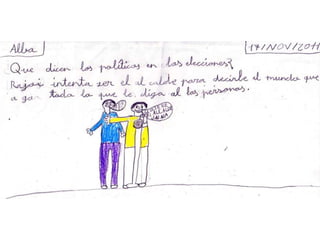 Alba
17/NOV/2011
Que dicen los políticos en las elecciones?
Rajoi intenta ser el alcalde para decirle el mundo que
a ga toda la que le diga al las personas.